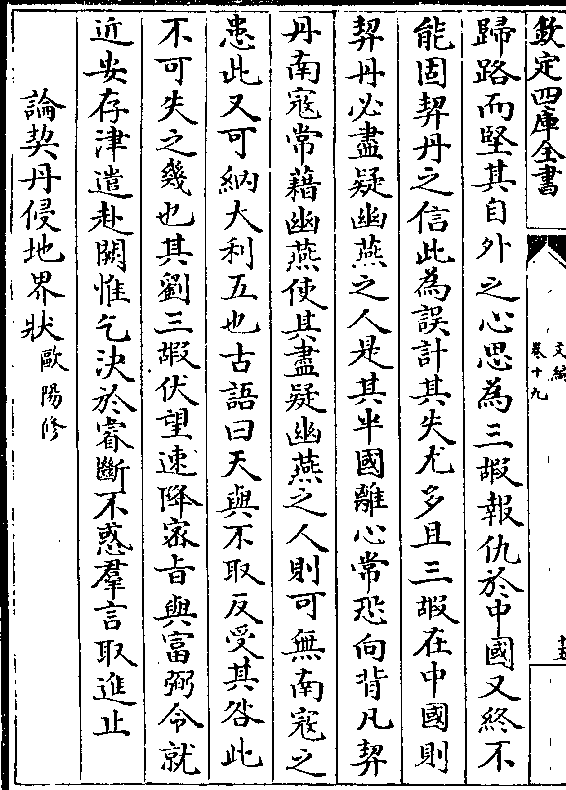 欽定四庫全書
文編
卷十九
歸路而堅其自外之心思為三嘏報仇於中國又終不
能固契丹之信此為誤計其失尤多且三嘏在中國則
契丹必盡疑幽燕之人是其半國離心常恐向背凡契
丹南寇常藉幽燕使其盡疑幽燕之人則可無南寇之
患此又可納大利五也古語曰天與不取反受其咎此
不可失之幾也其劉三嘏伏望速降宻旨與富弼令就
近安存津遣赴闕惟乞決於睿斷不惑羣言取進止
論契丹侵地界狀歐陽修